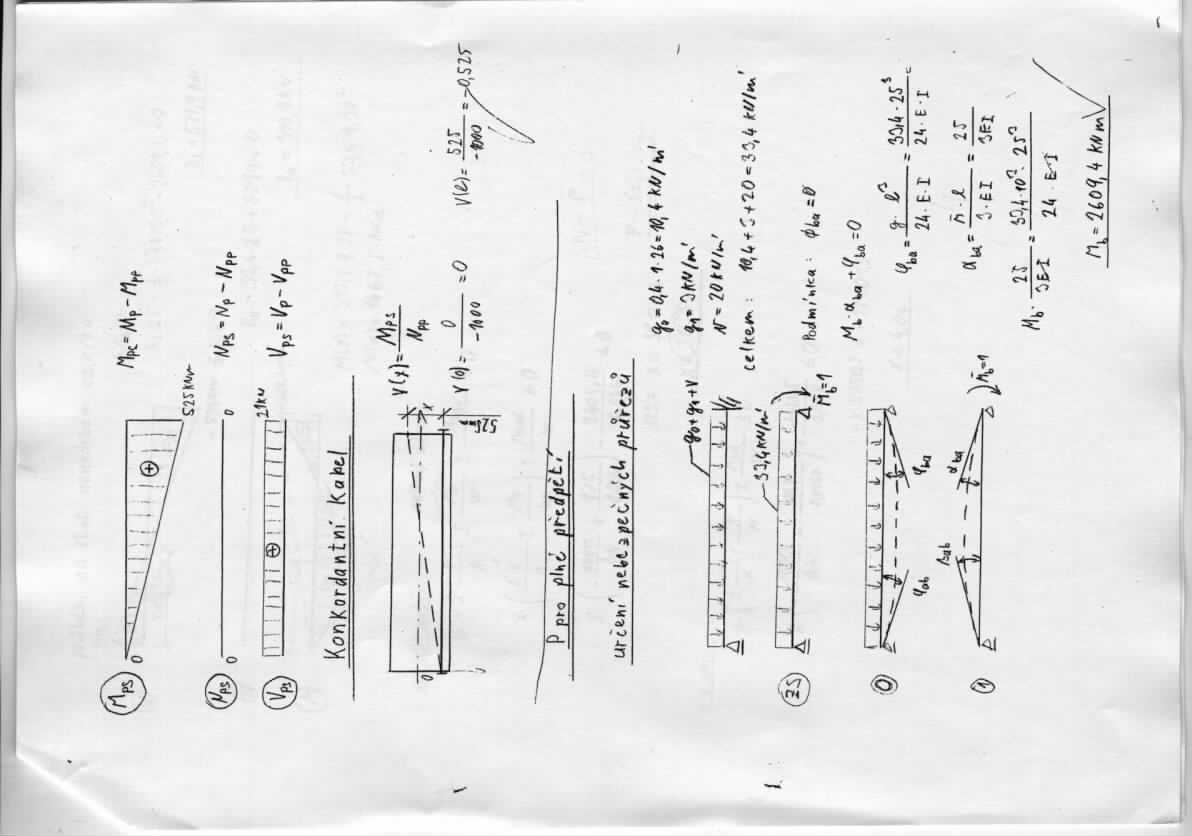 M_PS 0 ⊕ 525 kNm M_PC = M_P - M_PP
N_PS 0 0 N_PS = N_P - N_PP
V_PS ⊕ 21 kN V_PS = V_P - V_PP
Konkordantní kabel
0 x 525 mm V(x) = M_PS / N_PP
V(0) = 0 / -1000 = 0 V(l) = 525 / -1000 = -0,525
P pro plné předpětí
určení nebezpečných průřezů
g0+g1+V g0 = 0,4 · 1 · 26 = 10,4 kN/m'
g1 = 3 kN/m'
N = 20 kN/m'
celkem: 10,4 + 3 + 20 = 33,4 kN/m'
ZS 33,4 kN/m' M̄b=1 Podmínka: ϕba = 0
Mb · αba + φba = 0
0 φab φba φba = g · l³ / 24 · E · I = 33,4 · 25³ / 24 · E · I
1 βab αba M̄b=1 αba = m̄ · l / 3 · EI = 25 / 3EI
Mb · 25 / 3EI = 33,4 · 10³ · 25³ / 24 · E · I
Mb = 2609,4 kNm